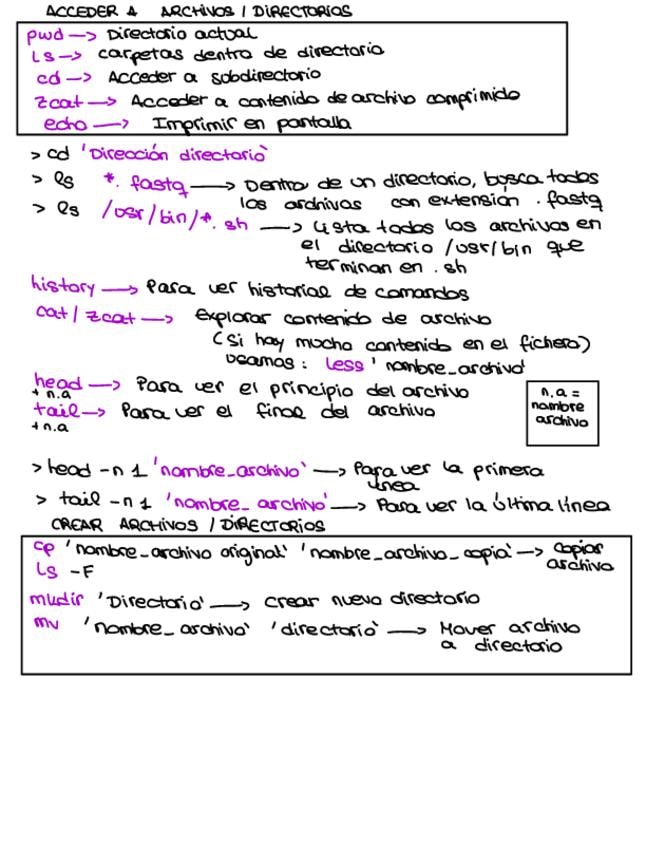 ACCEDER A ARCHIVOS / DIRECTORIOS
pwd —> Directorio actual
Ls —> carpetas dentro de directorio
cd —> Acceder a subdirectorio
zcat —> Acceder a contenido de archivo comprimido
echo —> Imprimir en pantalla
> cd 'Dirección directorio'
> ls *. fastq —> Dentro de un directorio, busca todos
los archivos con extension .fastq
> ls /usr/bin/*. sh —> Lista todos los archivos en
el directorio /usr/bin que
terminan en .sh
history —> Para ver historial de comandos
cat / zcat —> Explorar contenido de archivo
(Si hay mucho contenido en el fichero)
usamos: Less 'nombre_archivo'
head —> Para ver el principio del archivo
+ n.a
tail —> Para ver el final del archivo
+ n.a
n.a =
nombre
archivo
> head -n 1 'nombre_archivo' —> Para ver la primera
línea
> tail -n 1 'nombre_archivo' —> Para ver la última línea
CREAR ARCHIVOS / DIRECTORIOS
cp 'nombre_archivo original' 'nombre_archivo_copia' —> copiar
archivo
Ls -F
mudir 'Directorio' —> crear nuevo directorio
mv 'nombre_archivo' 'directorio' —> Mover archivo
a directorio